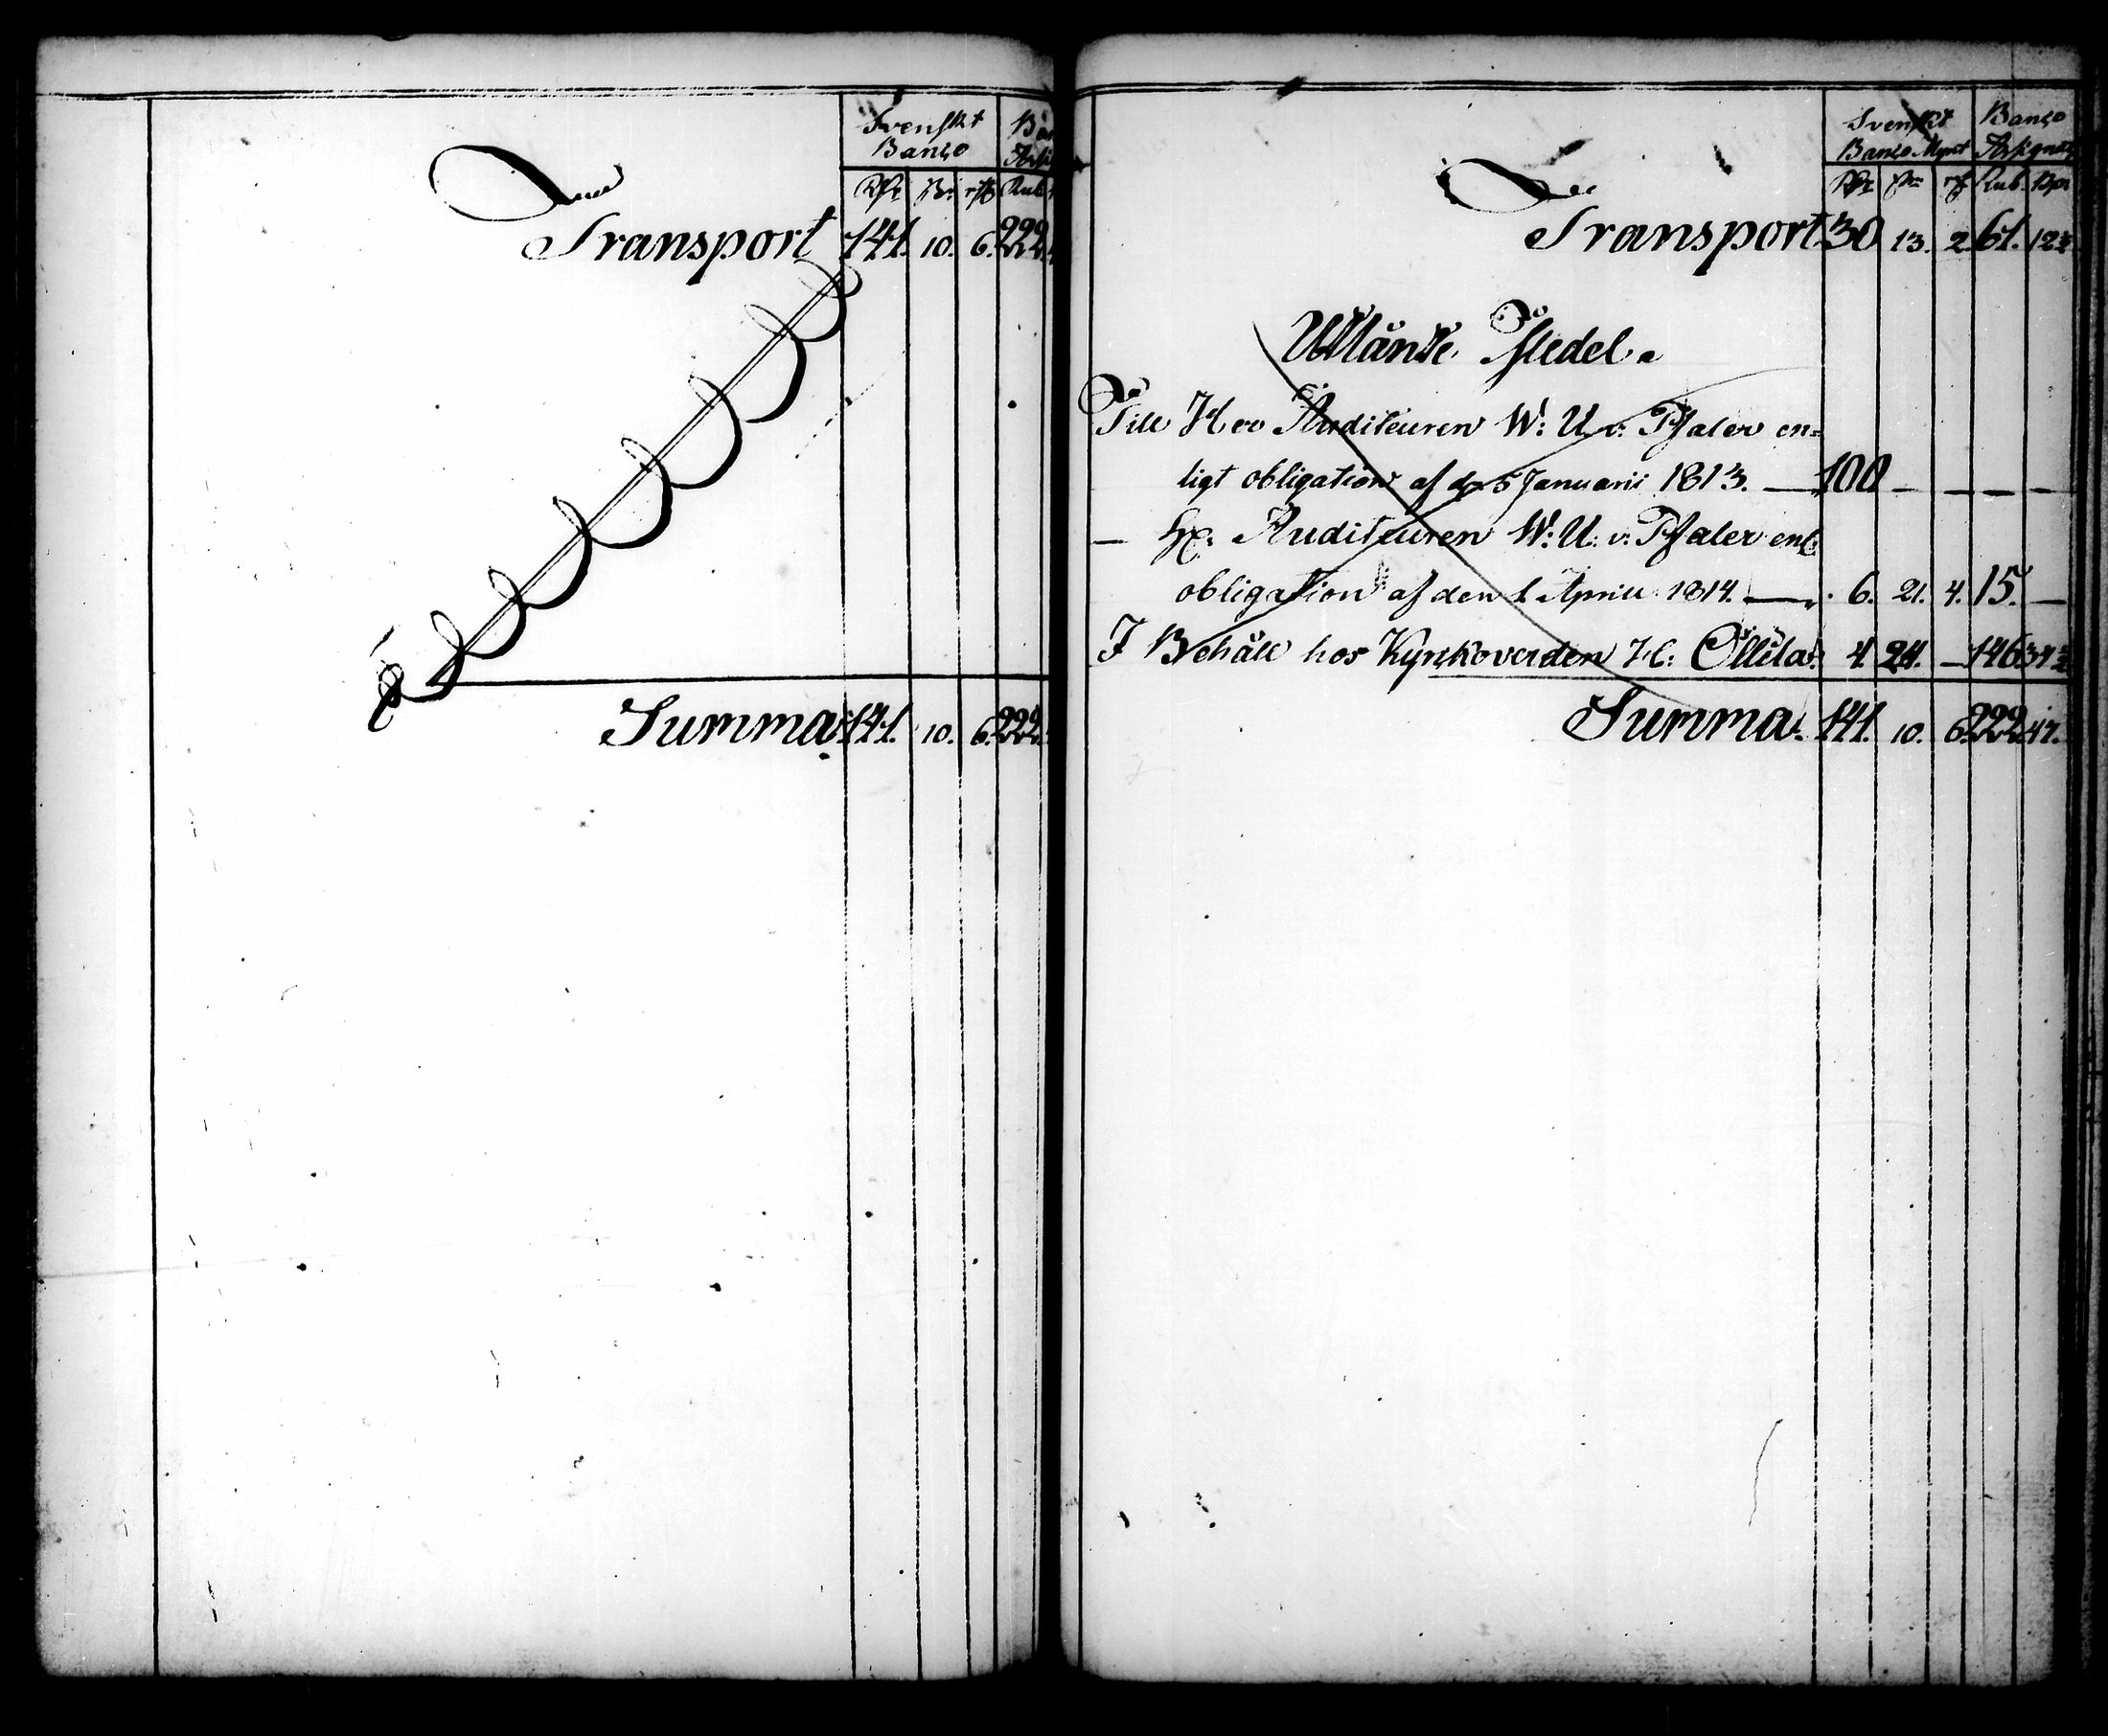 Svenskt
Banco
Rdr
Transport 141. 10. 6. 222.
Summa 141. 10. 6. 222.
Svenskt Banco
Banco Mynt Assignat
Rub.
Transport 30 13. 2 61. 12½
Utlånte Medel.
Till Herr Auditeuren W: U. v: Pfaler en=
ligt obligation af d. 5 Januarii 1813. — 100 — — — —
— H: Auditeuren W: U: v: Pfaler enl:
obligation af den 1 Aprill 1814. — 6. 21. 4. 15. —
I Behåll hos Kyrkovärden H: Ollila. 4 24. — 146 34½
Summa. 141. 10. 6. 222. 47.